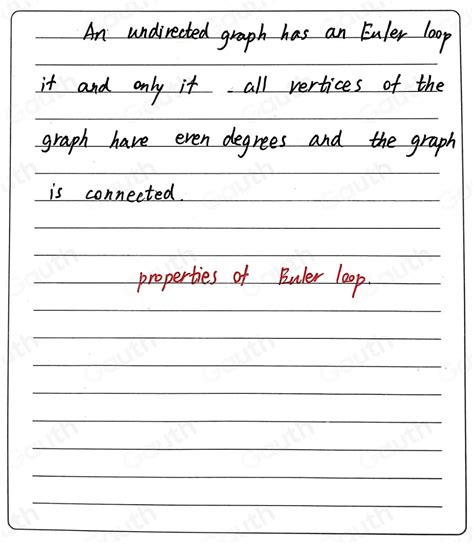 An undirected graph has an Euler loop
if and only if all vertices of the
graph have even degrees and the graph
is connected.
properties of Euler loop.